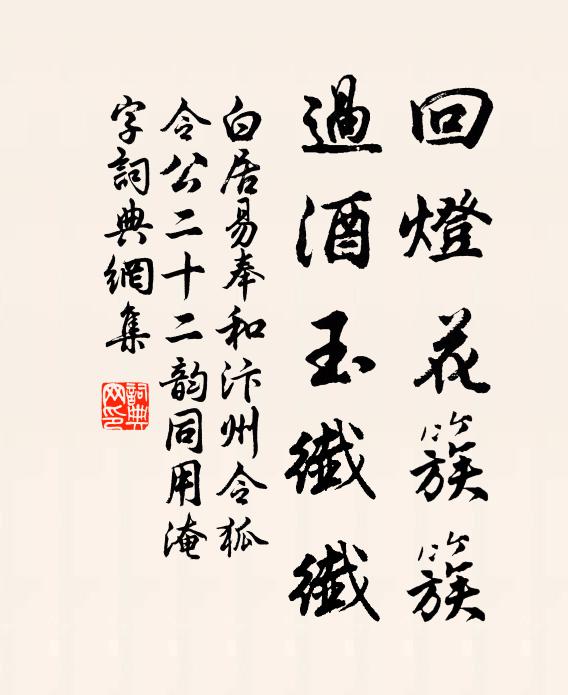 回燈花簇簇
過酒玉纖纖
白居易奉和汴州令狐
令公二十二韵同用淹
字詞典網集
詞典網印